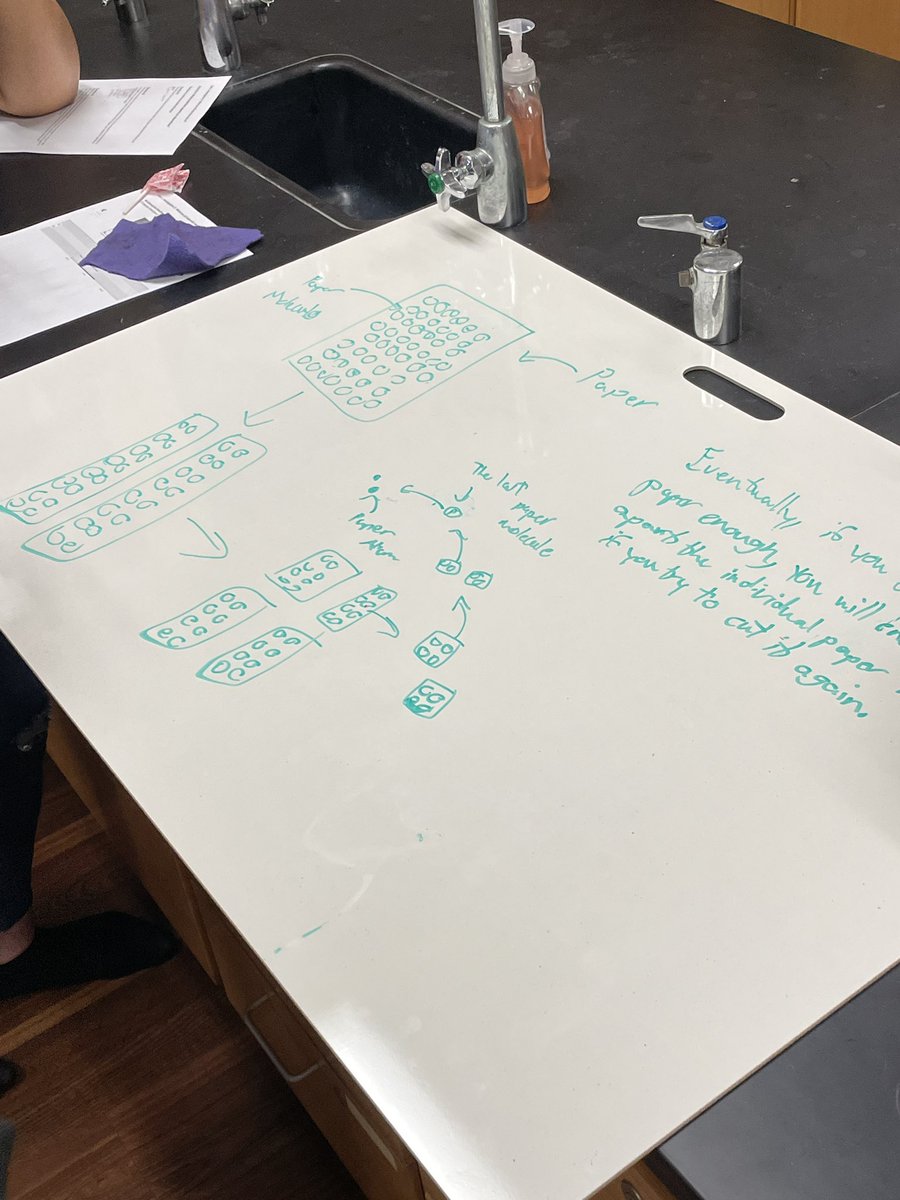 Paper
Molecule
Paper
The last
paper
molecule
Paper
Atom
Eventually, if you
paper enough, you will
apart the individual paper
if you try to cut it again.